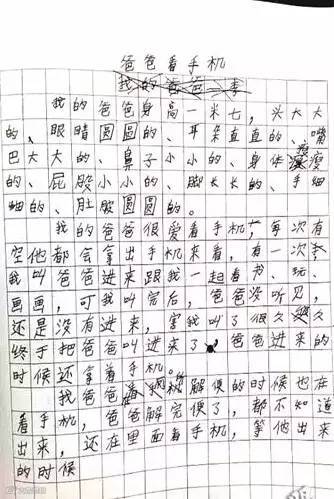 爸爸看手机
我的爸爸一事
我的爸爸身高一米七,头大大
的、眼睛圆圆的、耳朵直直的、嘴
巴大大的、鼻子小小的、身体瘦瘦
的、屁股小小的、脚长长的、手细
细的、肚股圆圆的。
我的爸爸很爱看手机,每次有
空他都会拿出手机来看,有一次,
我叫爸爸进来跟我一起看书、玩、
画画,可我叫完后,爸爸没听见,
还是没有进来,害我叫了很久,
终于把爸爸叫进来了,爸爸进来的
时候还拿着手机。
我爸爸解便的时候也在
看手机,爸爸解完便了,都不知道
出来,还在里面看手机,等他出来
的时候